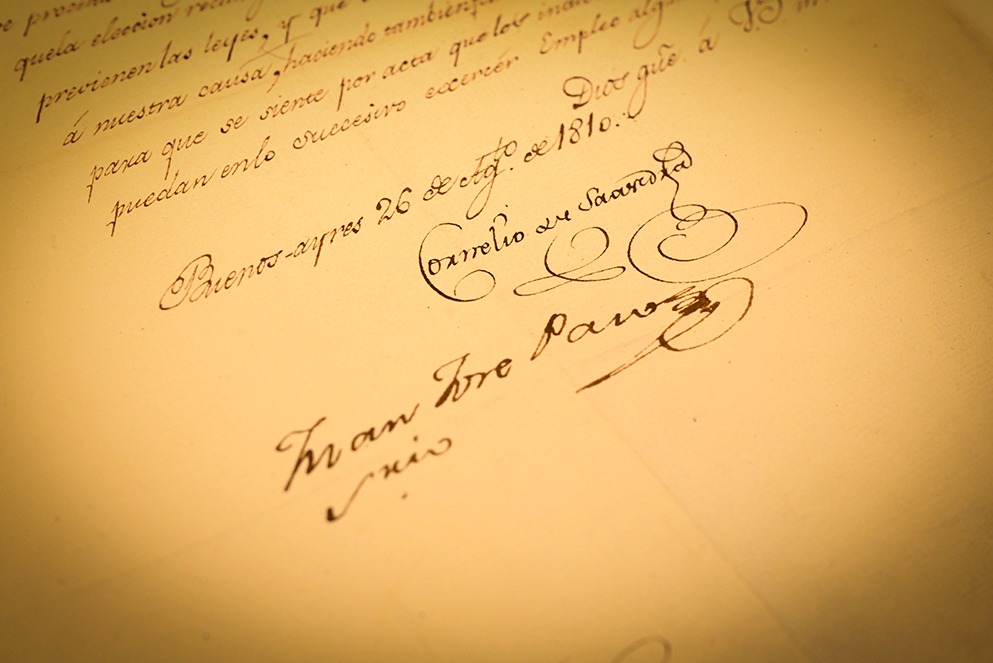 quela eleccion
previenen las leyes, y que
á nuestra causa, haciendo tambien
para que se siente por acta que los indi
puedan en lo succesivo exercér Empleo algu
Dios gũe. á
Buenos-ayres 26 de Agto. de 1810.
Cornelio de Saavedra
Juan Jose Passo
Srio